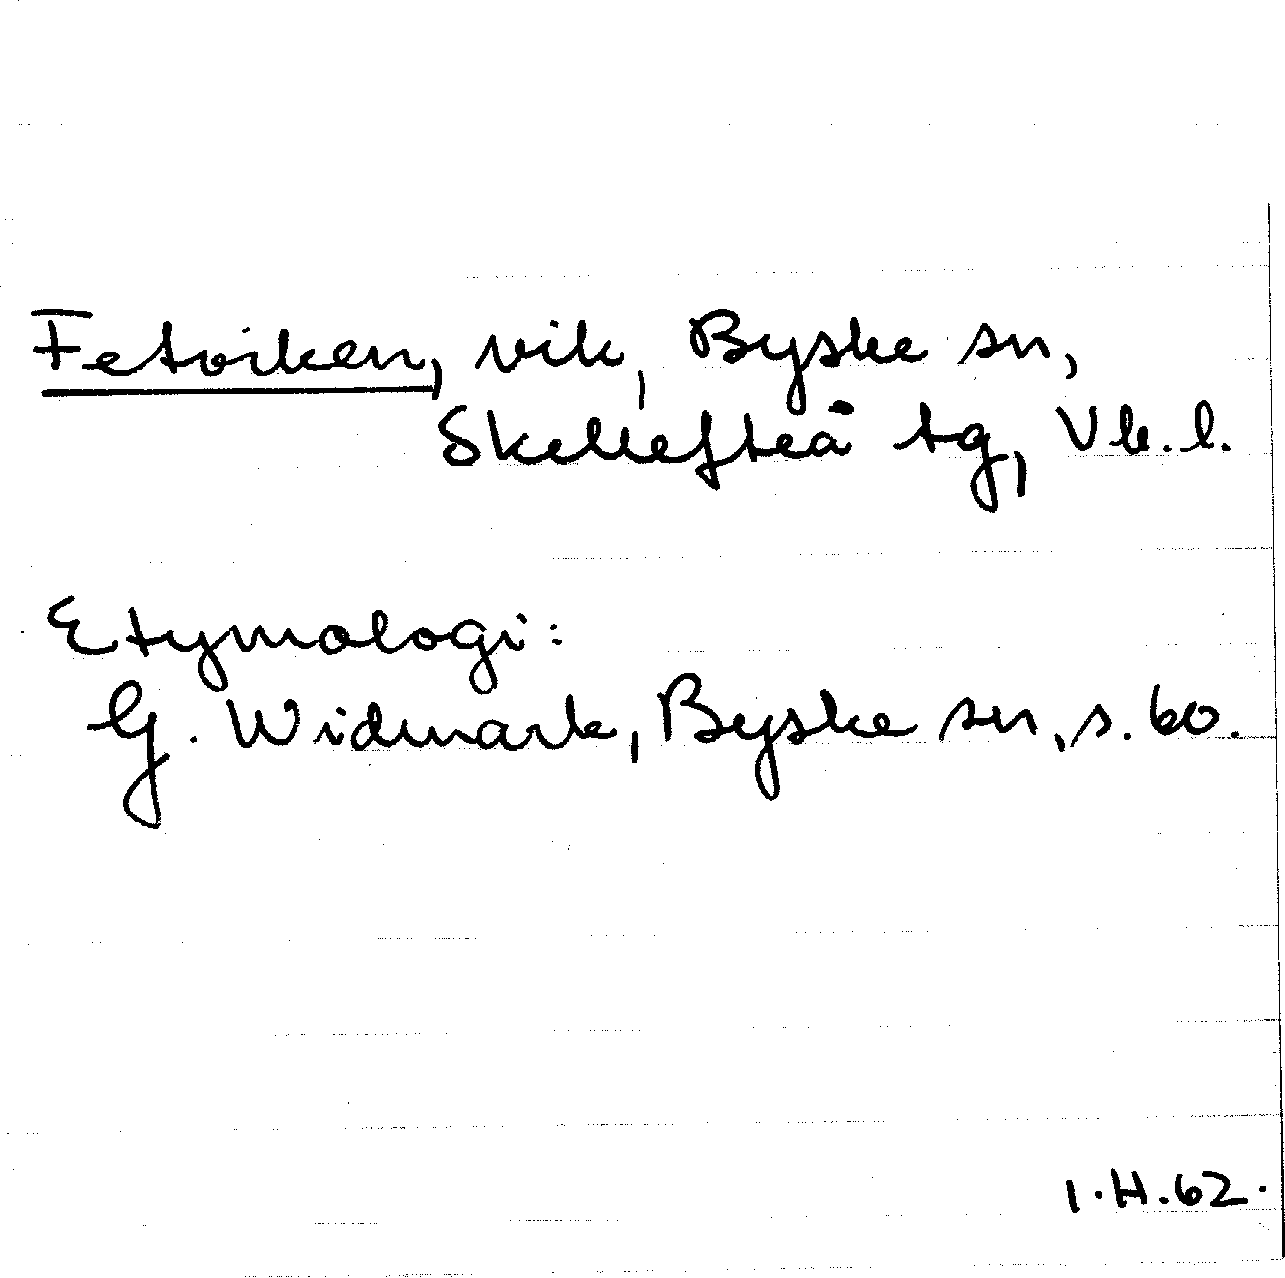 Fetviken, vik, Byske sn,
Skellefteå tg, Vb.l.
Etymologi:
G. Widmark, Byske sn, s. 60.
I.H.62.